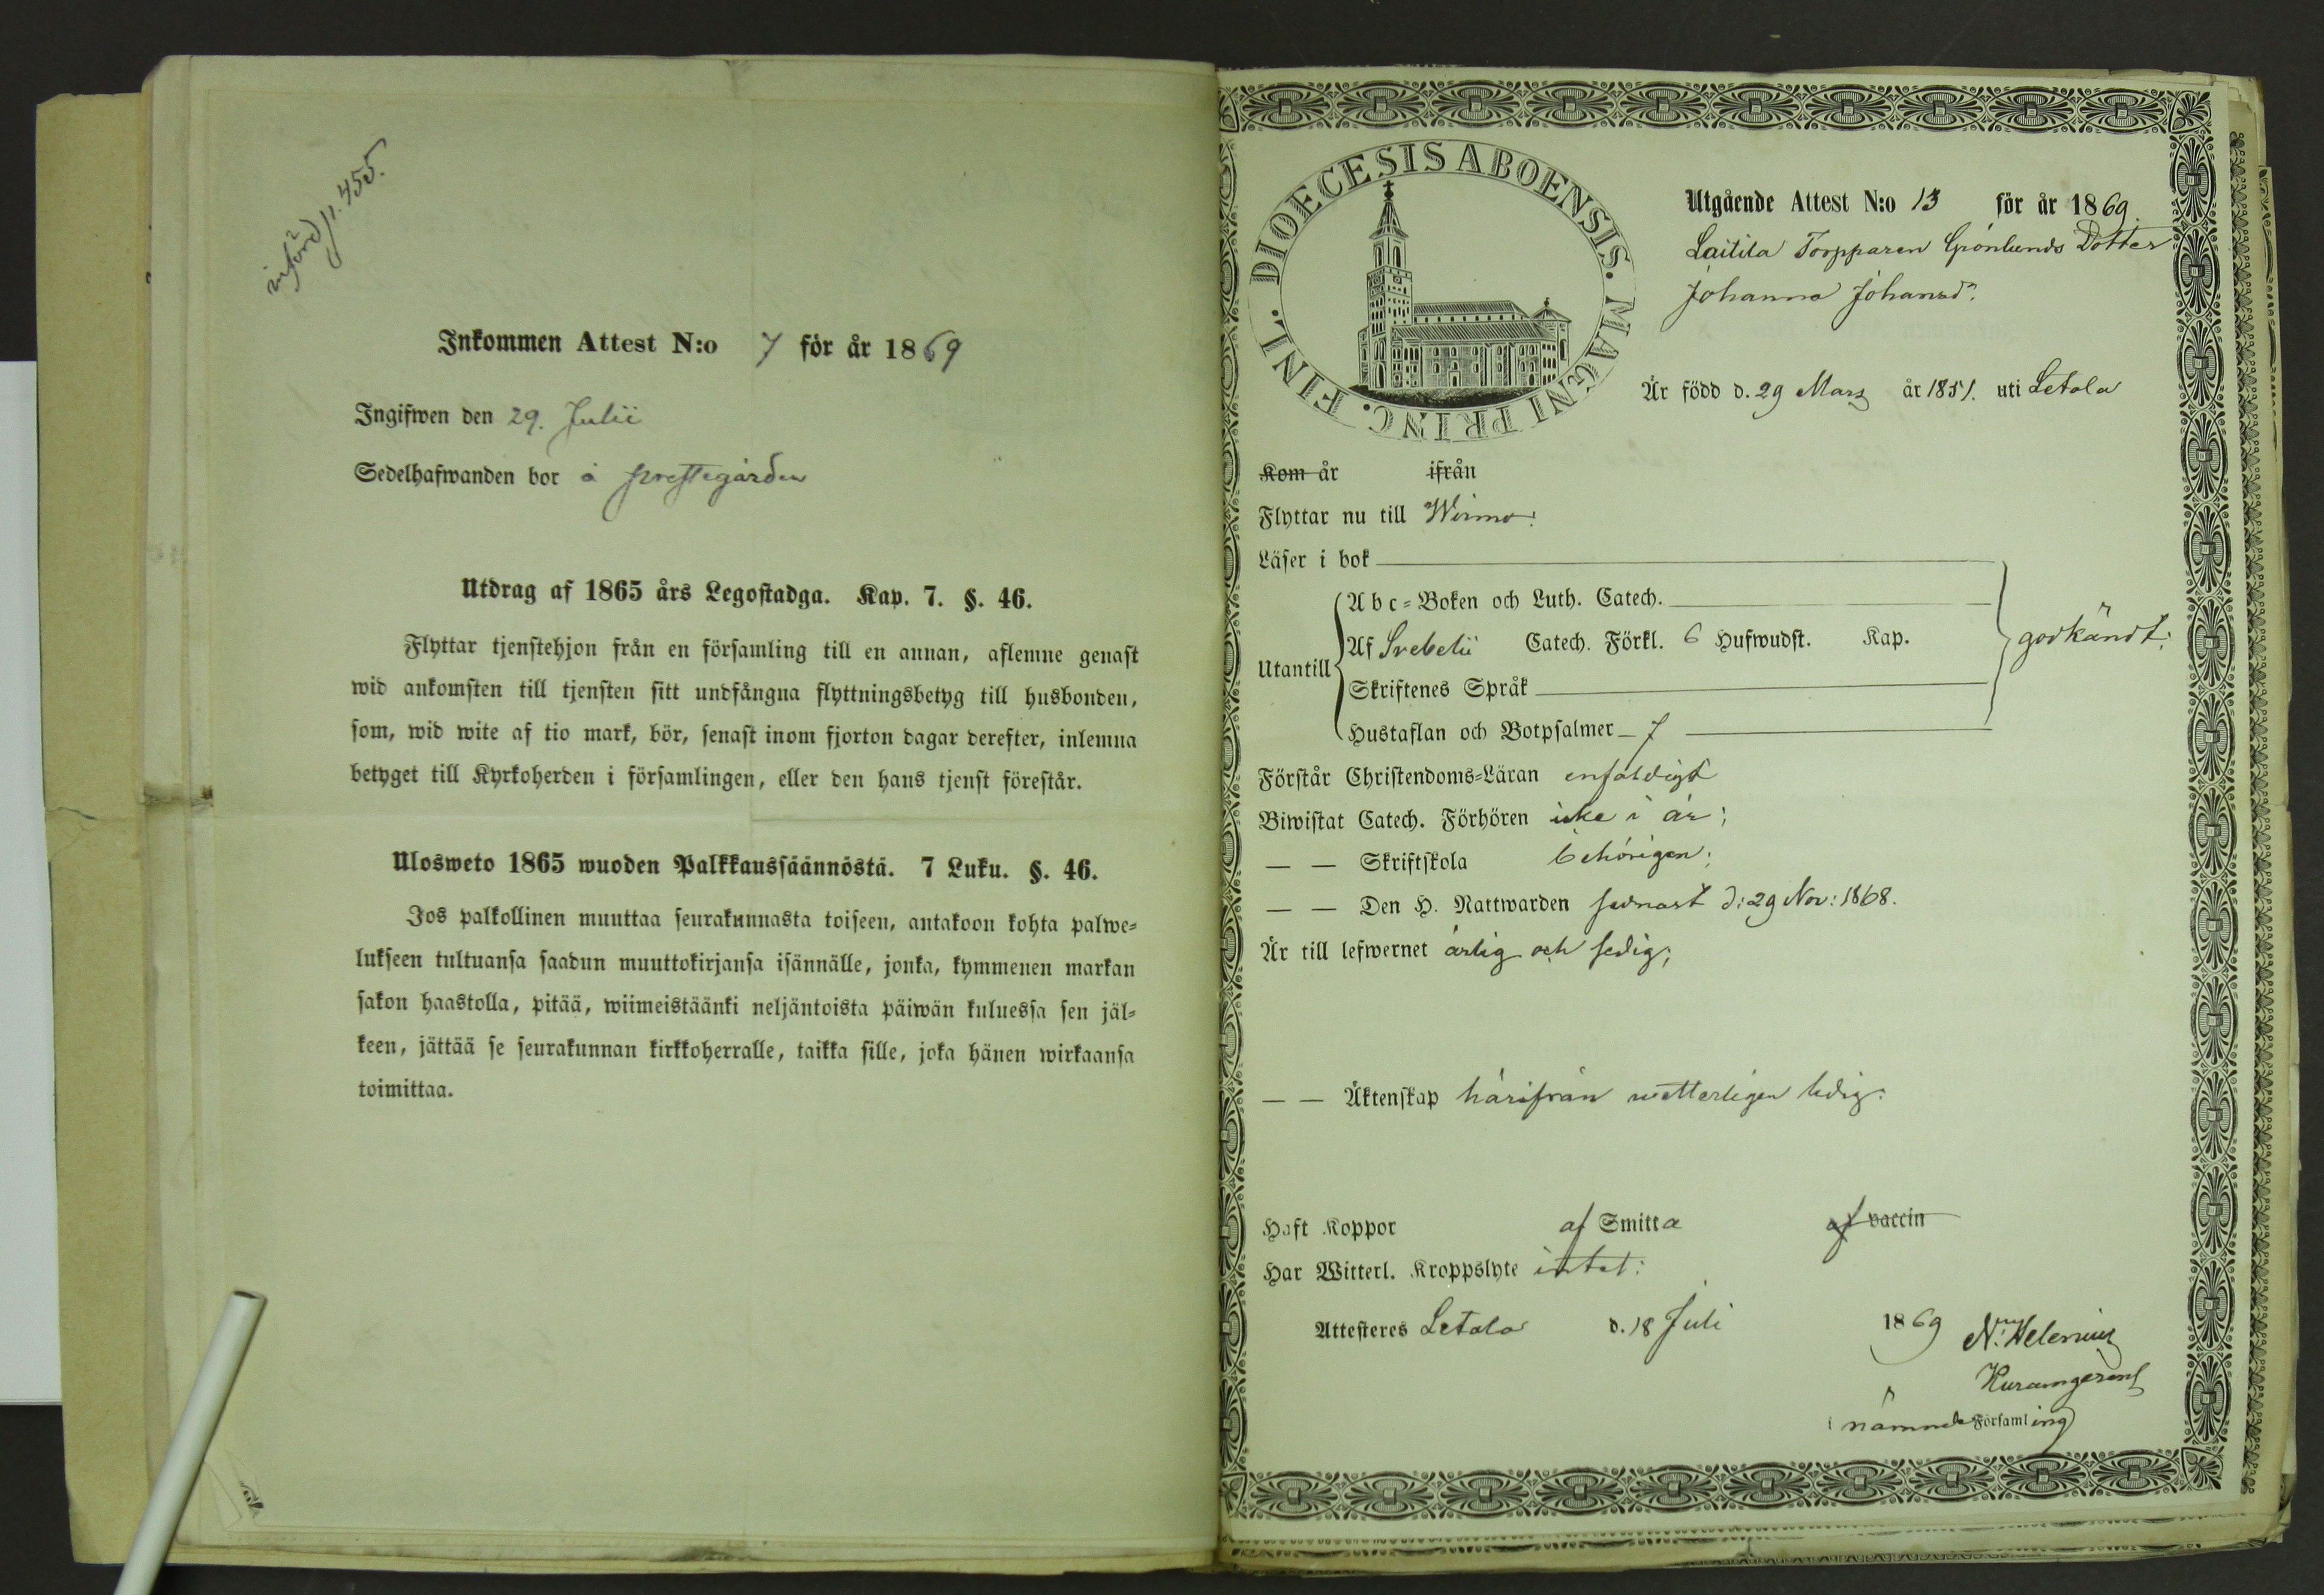 införd p. 455.
Inkommen Attest N:o 7 för år 1869
Ingifwen den 29. Julii
Sedelhafwanden bor å prestegården
Utdrag af 1865 års Legostadga. Kap. 7. §. 46.
Flyttar tjenstehjon från en församling till en annan, aflemne genast
wid ankomsten till tjensten sitt undfångna flyttningsbetyg till husbonden,
som, wid wite af tio mark, bör, senast inom fjorton dagar derefter, inlemna
betyget till Kyrkoherden i församlingen, eller den hans tjenst förestår.
Ulosweto 1865 wuoden Palkkaussäännöstä. 7 Luku. §. 46.
Jos palkollinen muuttaa seurakunnasta toiseen, antakoon kohta palwe=
lukseen tultuansa saadun muuttokirjansa isännälle, jonka, kymmenen markan
sakon haastolla, pitää, wiimeistäänki neljäntoista päiwän kuluessa sen jäl=
keen, jättää se seurakunnan kirkkoherralle, taikka sille, joka hänen wirkaansa
toimittaa.
DIOECESIS ABOENSIS. MAGNI PRINC. FINL.
Utgående Attest N:o 13 för år 1869.
Laitila Torpparen Grönlunds Dotter
Johanna Johansd:
Är född d. 29 Mars år 1851. uti Letala
Kom år ifrån
Flyttar nu till Wirmo:
Läser i bok
Abc=Boken och Luth. Catech.
Utantill Af Svebelii Catech. Förkl. 6 Hufwudst. Kap. godkändt:
Skriftenes Språk
Hustaflan och Botpsalmer 7
Förstår Christendoms=Läran enfaldigt
Biwistat Catech. Förhören icke i år;
— — Skriftskola behörigen;
— — Den H. Nattwarden sednast d: 29 Nov: 1868.
Är till lefwernet ärlig och sedig;
— — Äktenskap härifrån wetterligen ledig:
Haft Koppor af Smitta af vaccin
Har Witterl. Kroppslyte intet:
Attesteres Letala d. 18 Juli 1869 N. Helenius
i nämnde Församling